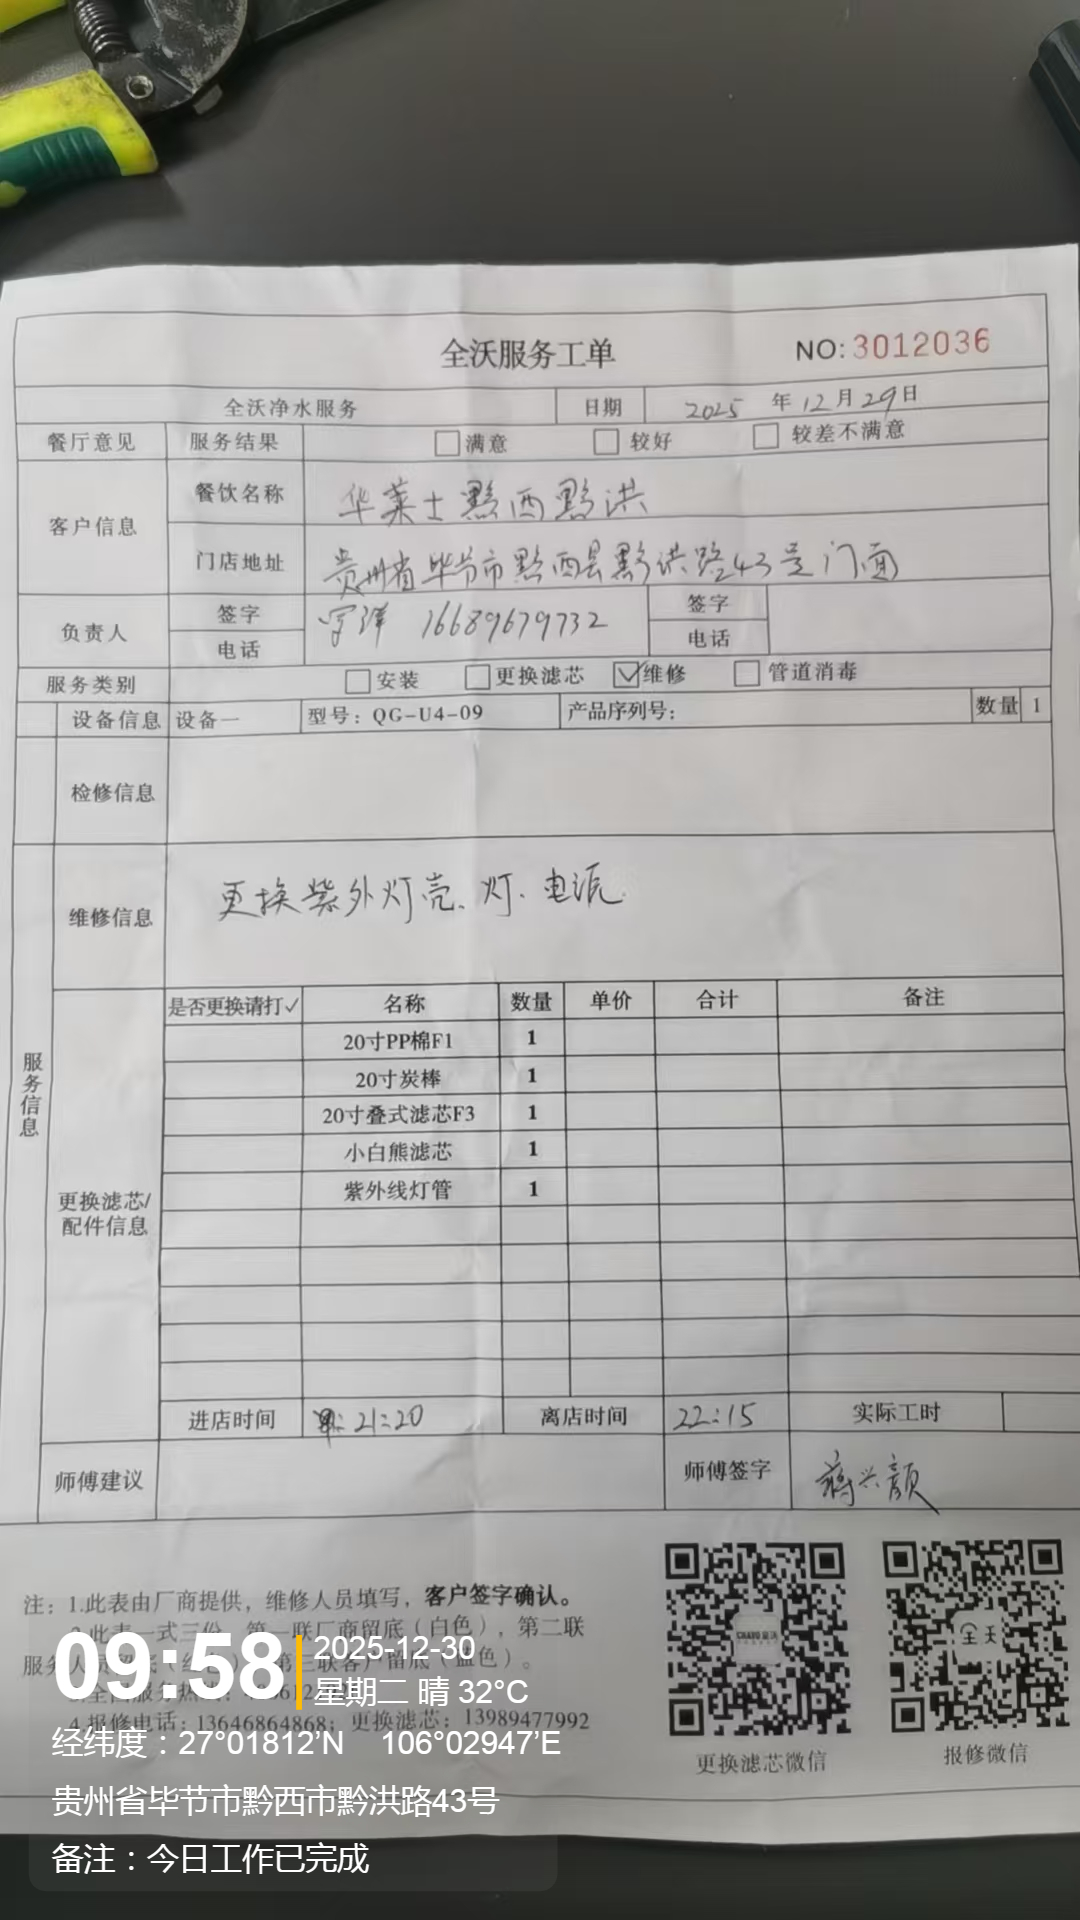 全沃服务工单 NO:3012036
全沃净水服务 日期 2025年12月29日
餐厅意见 服务结果 满意 较好 较差不满意
客户信息 餐饮名称 华莱士黔西黔洪
门店地址 贵州省毕节市黔西县黔洪路43号门面
负责人 签字 电话 16689679732 签字 电话
服务类别 安装 更换滤芯 ✓维修 管道消毒
设备信息 设备一 型号：QG-U4-09 产品序列号： 数量 1
检修信息
维修信息 更换紫外灯壳、灯、电源
服务信息
更换滤芯/配件信息
是否更换请打✓ 名称 数量 单价 合计 备注
20寸PP棉F1 1
20寸炭棒 1
20寸叠式滤芯F3 1
小白熊滤芯 1
紫外线灯管 1
进店时间 21:20 离店时间 22:15 实际工时
师傅建议 师傅签字 蒋兴颜
注：1.此表由厂商提供，维修人员填写，客户签字确认。
2.此表一式三份，第一联厂商留底（白色），第二联
服务人员留底（红色），第三联客户留底（蓝色）。
4.报修电话：13646864868；更换滤芯：13989477992
更换滤芯微信 报修微信
全天
09:58 2025-12-30
星期二 晴 32°C
经纬度：27°01812'N 106°02947'E
贵州省毕节市黔西市黔洪路43号
备注：今日工作已完成